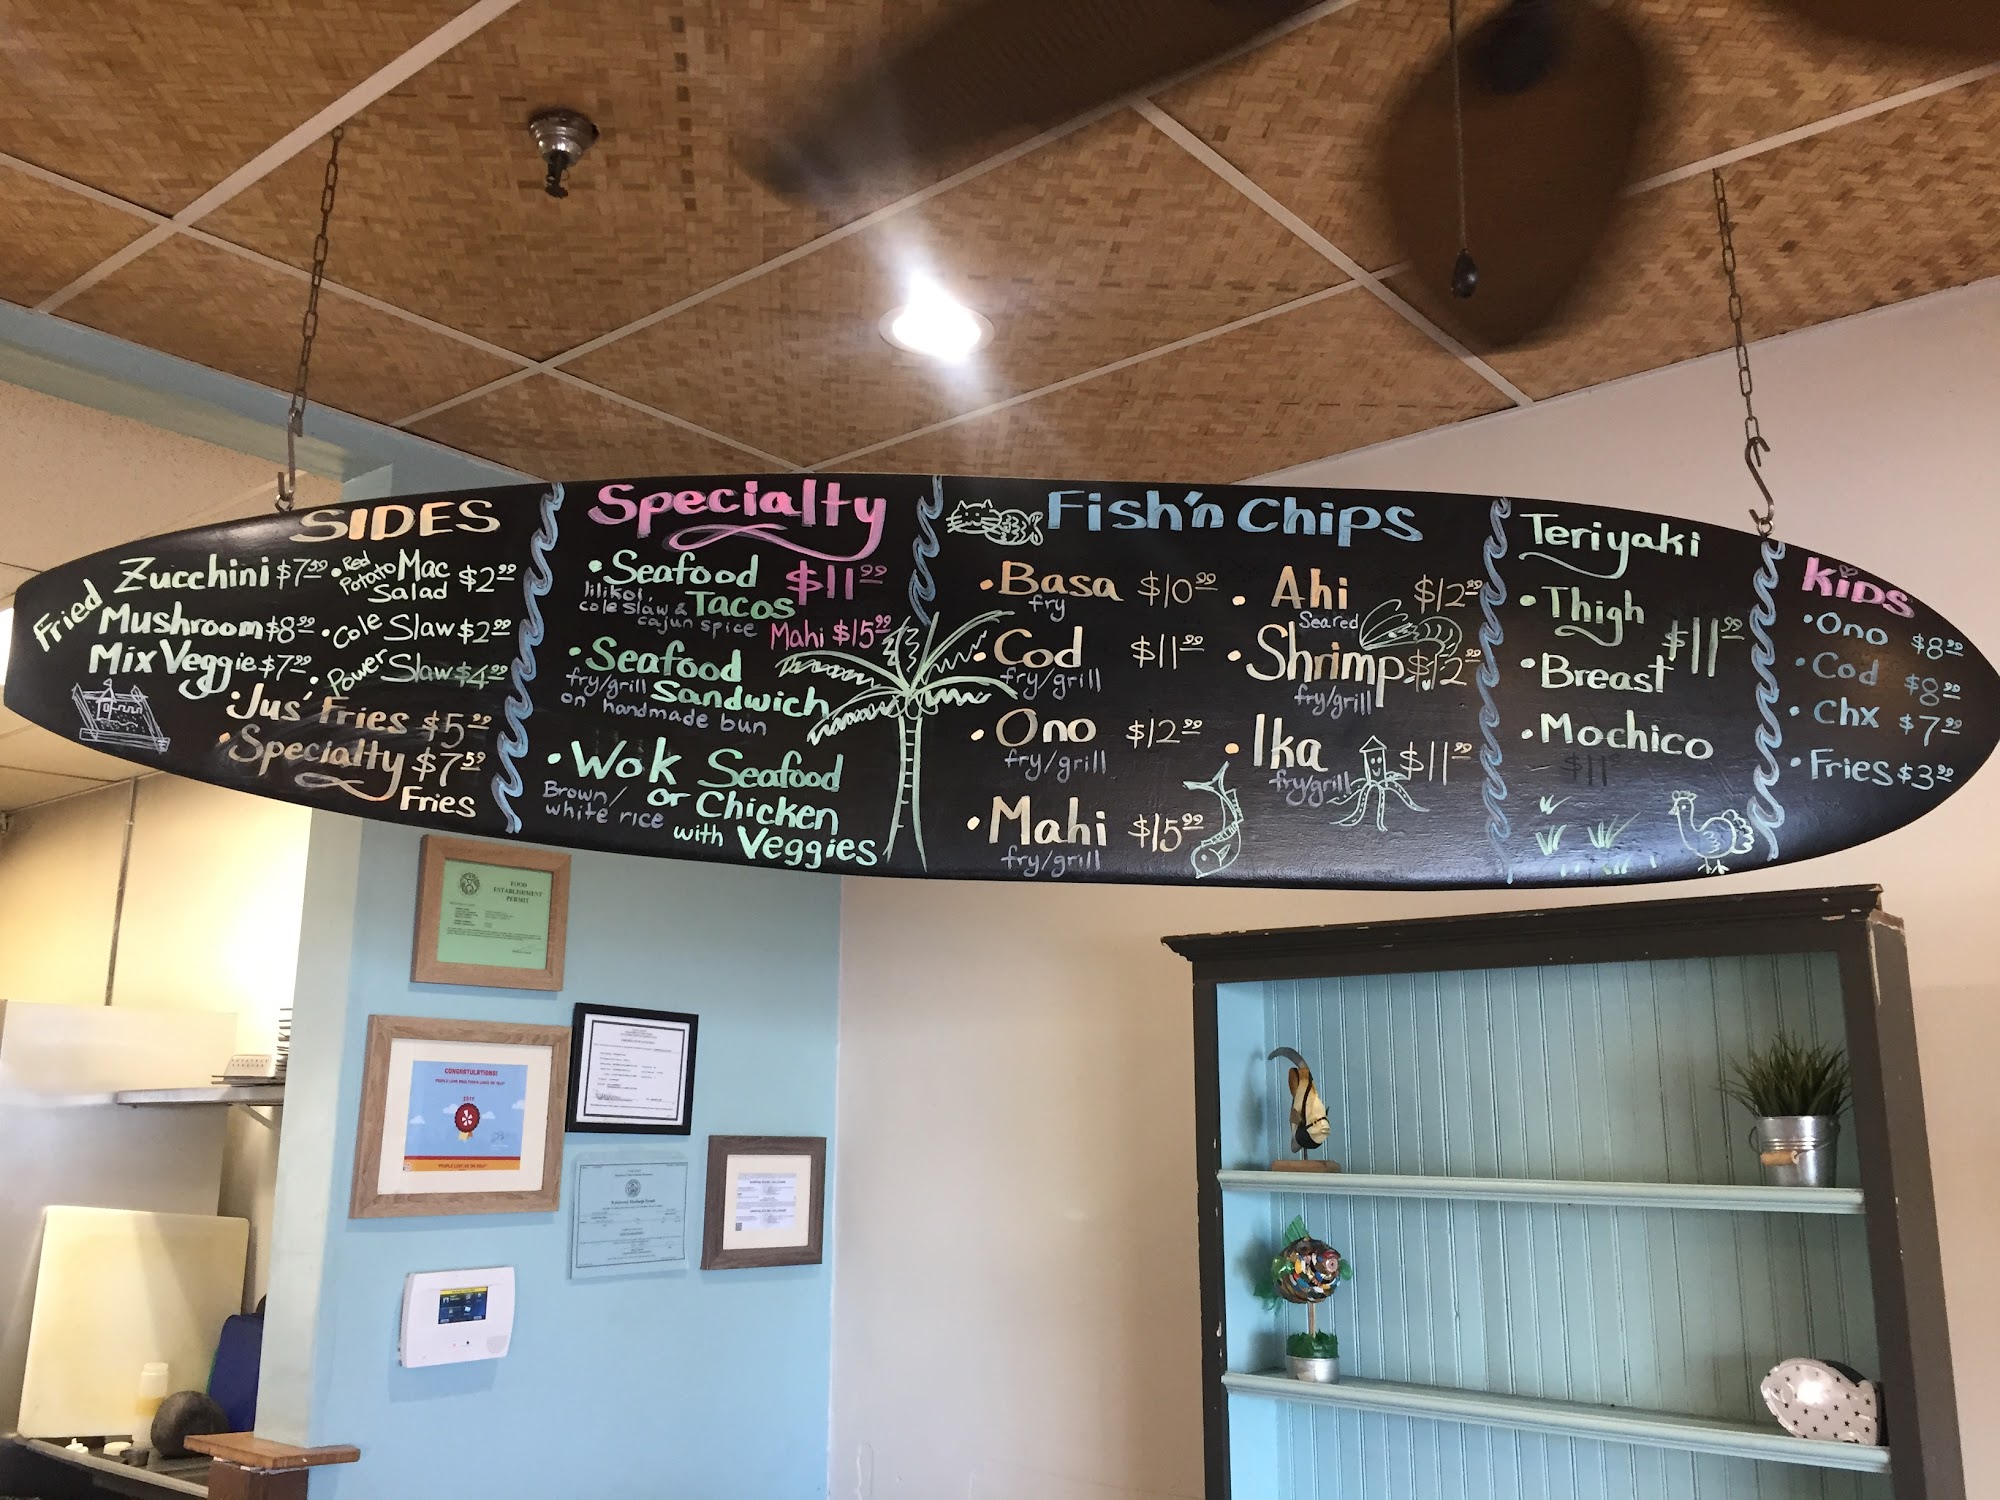 SIDES
Fried
Zucchini $7.59
Mushroom $8.99
Mix Veggie $7.99
• Red Potato Mac Salad $2.99
• Cole Slaw $2.99
• Power Slaw $4.99
• Jus' Fries $5.99
• Specialty Fries $7.59
Specialty
• Seafood Tacos $11.99
lilikoi,
cole slaw &
cajun spice
Mahi $15.99
• Seafood
Sandwich
fry/grill
on handmade bun
• Wok Seafood
or Chicken
with Veggies
Brown/
white rice
Fish'n Chips
• Basa $10.99
fry
• Cod $11.99
fry/grill
• Ono $12.99
fry/grill
• Mahi $15.99
fry/grill
• Ahi $12.99
Seared
• Shrimp $12.99
fry/grill
• Ika $11.99
fry/grill
Teriyaki
• Thigh
• Breast
$11.99
• Mochico
$11
Kids
• Ono $8.99
• Cod $8.99
• Chx $7.99
• Fries $3.99
FOOD
ESTABLISHMENT
PERMIT
CONGRATULATIONS!